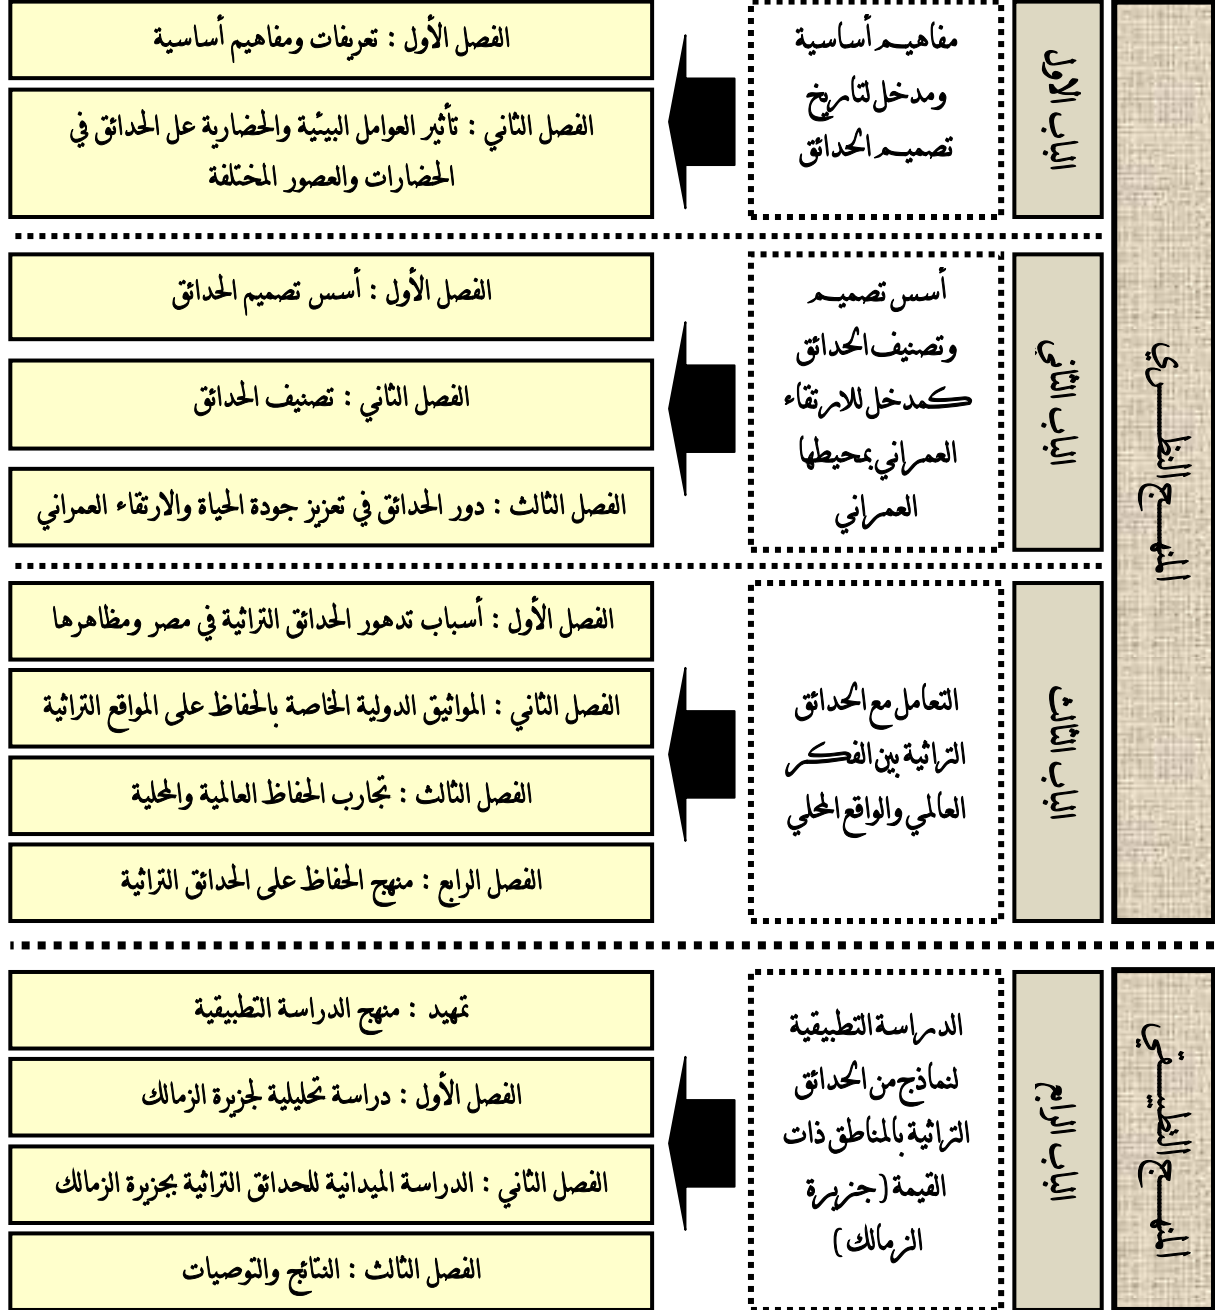 المنهج النظري
الباب الأول
مفاهيم أساسية
ومدخل لتاريخ
تصميم الحدائق
الفصل الأول : تعريفات ومفاهيم أساسية
الفصل الثاني : تأثير العوامل البيئية والحضارية عل الحدائق في
الحضارات والعصور المختلفة
الباب الثاني
أسس تصميم
وتصنيف الحدائق
كمدخل للارتقاء
العمراني بمحيطها
العمراني
الفصل الأول : أسس تصميم الحدائق
الفصل الثاني : تصنيف الحدائق
الفصل الثالث : دور الحدائق في تعزيز جودة الحياة والارتقاء العمراني
الباب الثالث
التعامل مع الحدائق
التراثية بين الفكر
العالمي والواقع المحلي
الفصل الأول : أسباب تدهور الحدائق التراثية في مصر ومظاهرها
الفصل الثاني : المواثيق الدولية الخاصة بالحفاظ على المواقع التراثية
الفصل الثالث : تجارب الحفاظ العالمية والمحلية
الفصل الرابع : منهج الحفاظ على الحدائق التراثية
المنهج التطبيقي
الباب الرابع
الدراسة التطبيقية
لنماذج من الحدائق
التراثية بالمناطق ذات
القيمة (جزيرة
الزمالك)
تمهيد : منهج الدراسة التطبيقية
الفصل الأول : دراسة تحليلية لجزيرة الزمالك
الفصل الثاني : الدراسة الميدانية للحدائق التراثية بجزيرة الزمالك
الفصل الثالث : النتائج والتوصيات